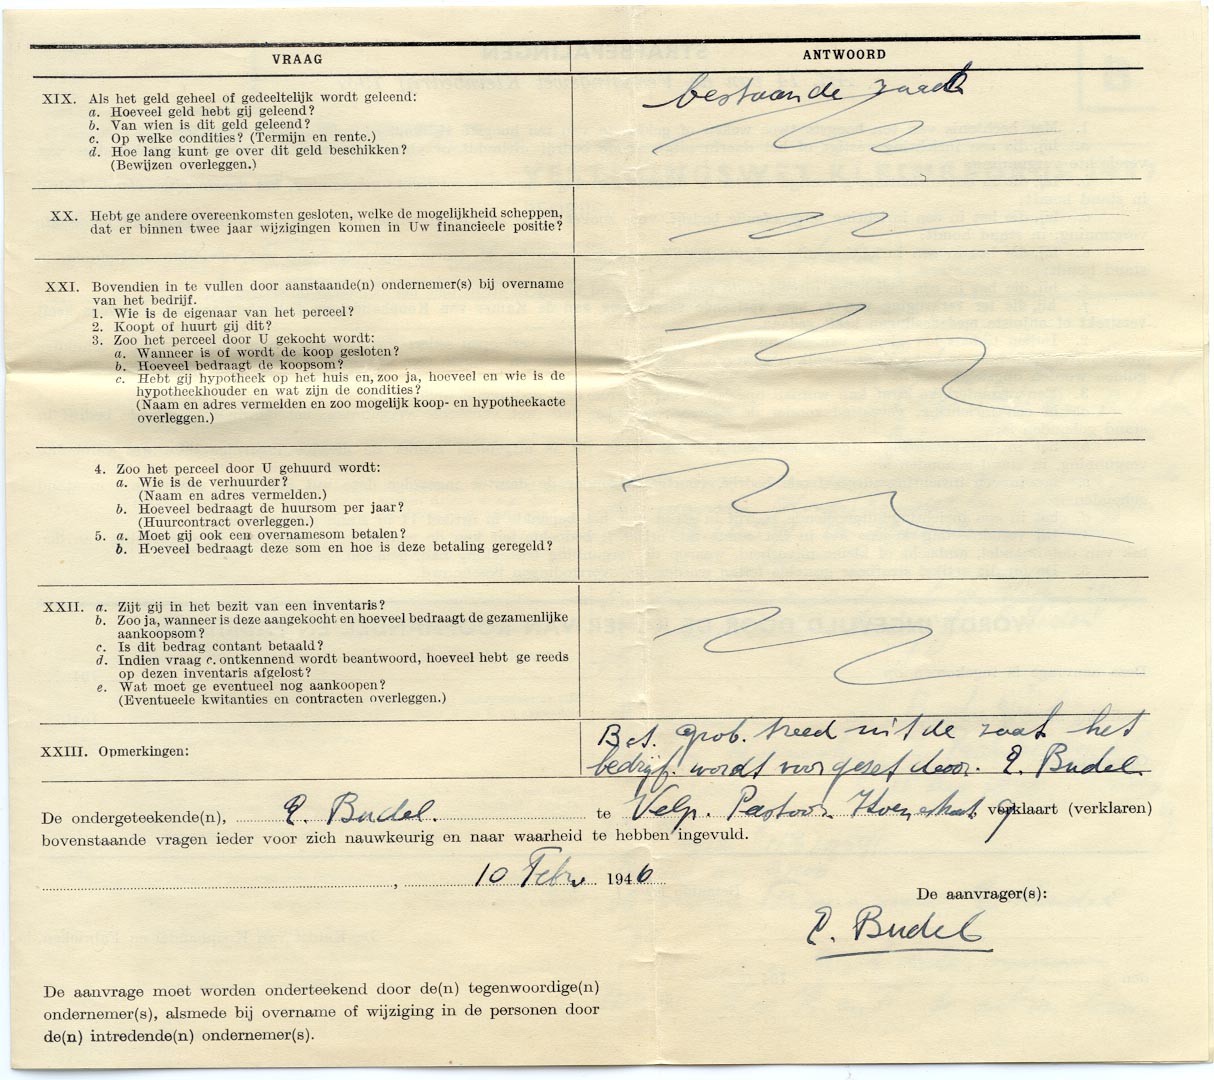 VRAAG
ANTWOORD
XIX. Als het geld geheel of gedeeltelijk wordt geleend:
bestaande zaak
a. Hoeveel geld hebt gij geleend?
b. Van wien is dit geld geleend?
c. Op welke condities? (Termijn en rente.)
d. Hoe lang kunt ge over dit geld beschikken?
(Bewijzen overleggen.)
XX. Hebt ge andere overeenkomsten gesloten, welke de mogelijkheid scheppen,
dat er binnen twee jaar wijzigingen komen in Uw financieele positie?
XXI. Bovendien in te vullen door aanstaande(n) ondernemer(s) bij overname
van het bedrijf.
1. Wie is de eigenaar van het perceel?
2. Koopt of huurt gij dit?
3. Zoo het perceel door U gekocht wordt:
a. Wanneer is of wordt de koop gesloten?
b. Hoeveel bedraagt de koopsom?
c. Hebt gij hypotheek op het huis en, zoo ja, hoeveel en wie is de
hypotheekhouder en wat zijn de condities?
(Naam en adres vermelden en zoo mogelijk koop- en hypotheekacte
overleggen.)
4. Zoo het perceel door U gehuurd wordt:
a. Wie is de verhuurder?
(Naam en adres vermelden.)
b. Hoeveel bedraagt de huursom per jaar?
(Huurcontract overleggen.)
5. a. Moet gij ook een overnamesom betalen?
b. Hoeveel bedraagt deze som en hoe is deze betaling geregeld?
XXII. a. Zijt gij in het bezit van een inventaris?
b. Zoo ja, wanneer is deze aangekocht en hoeveel bedraagt de gezamenlijke
aankoopsom?
c. Is dit bedrag contant betaald?
d. Indien vraag c. ontkennend wordt beantwoord, hoeveel hebt ge reeds
op dezen inventaris afgelost?
e. Wat moet ge eventueel nog aankoopen?
(Eventueele kwitanties en contracten overleggen.)
XXIII. Opmerkingen:
treed uit de zaak het
bedrijf wordt voorgeset door E. Budel.
De ondergeteekende(n), E. Budel. te Velp. Pastoor 9 verklaart (verklaren)
bovenstaande vragen ieder voor zich nauwkeurig en naar waarheid te hebben ingevuld.
, 10 Febru 1946
De aanvrager(s):
E. Budel
De aanvrage moet worden onderteekend door de(n) tegenwoordige(n)
ondernemer(s), alsmede bij overname of wijziging in de personen door
de(n) intredende(n) ondernemer(s).